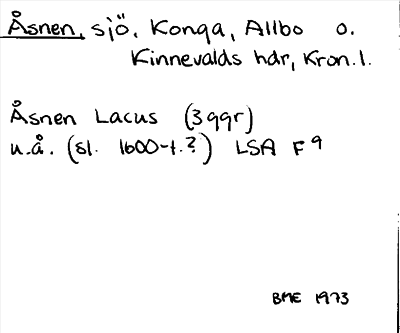 Åsnen, sjö, Konga, Allbo o.
Kinnevalds hdr, Kron. l.
Åsnen Lacus (3 ggr)
u.å. (sl. 1600-t.?) LSA F 9
BME 1973